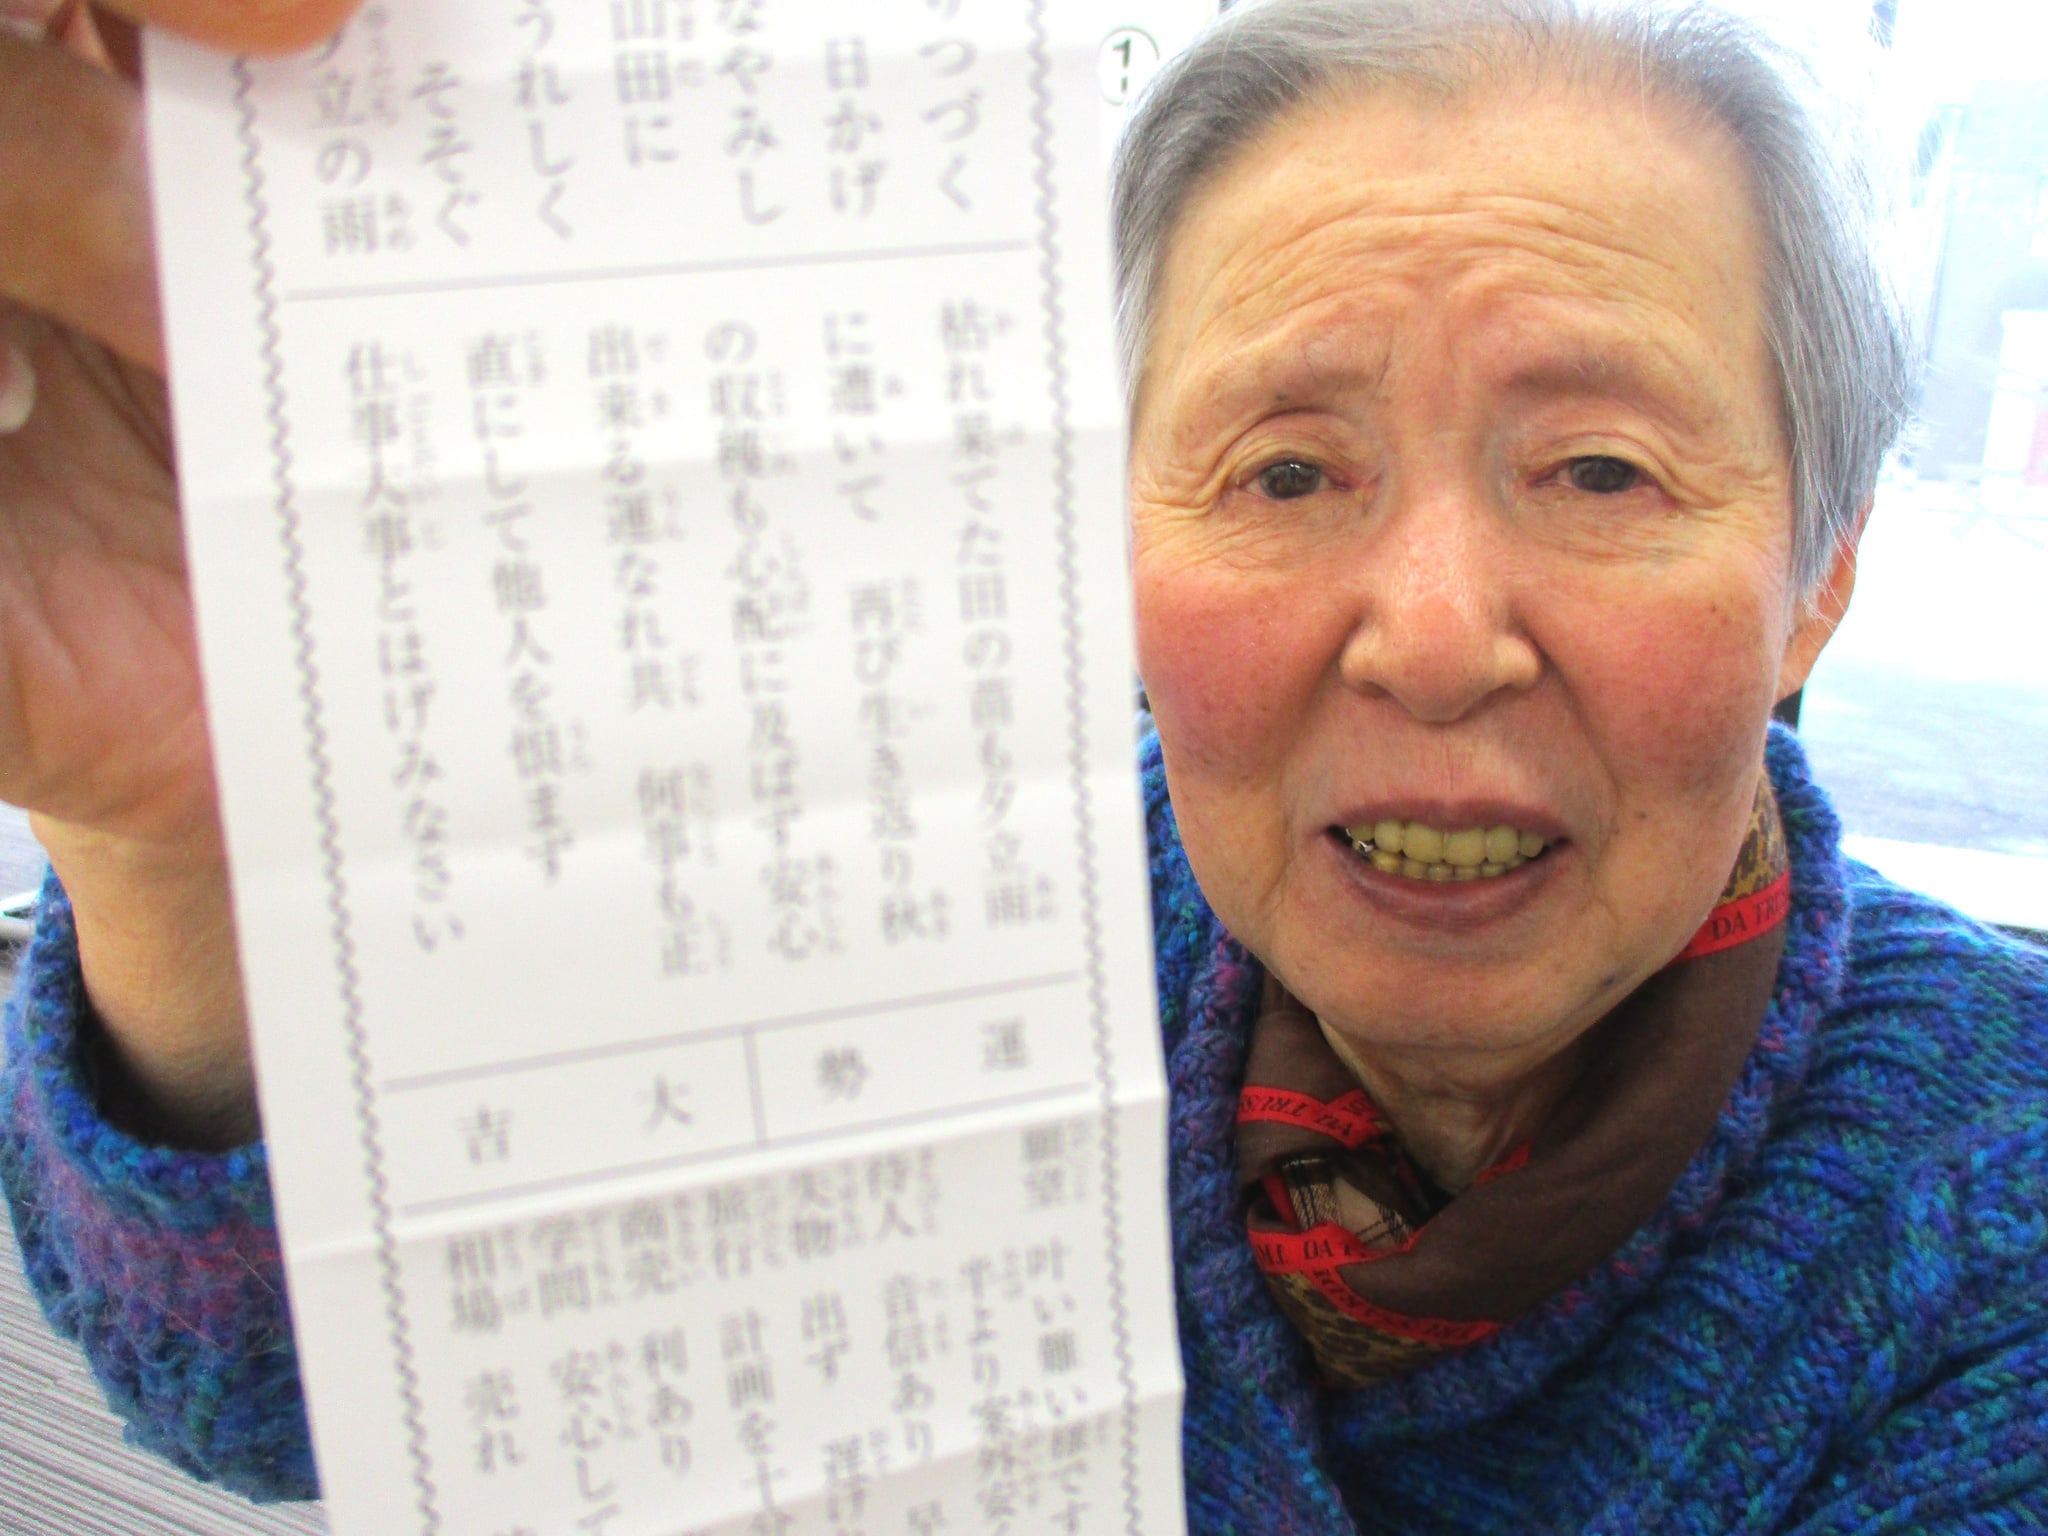 りつづく
日かげ
なやみし
山田に
うれしく
そそぐ
夕立の雨
枯れ果てた田の苗も夕立雨
に遭いて 再び生き返り秋
の収穫も心配に及ばず安心
出来る運なれ共 何事も正
直にして他人を恨まず
仕事大事とはげみなさい
運勢
大吉
願望 叶い難い様です
待人 音信あり
失物 出す
旅行 計画を十分
商売 利あり
学問 安心して
相場 売れ
DA TRUS